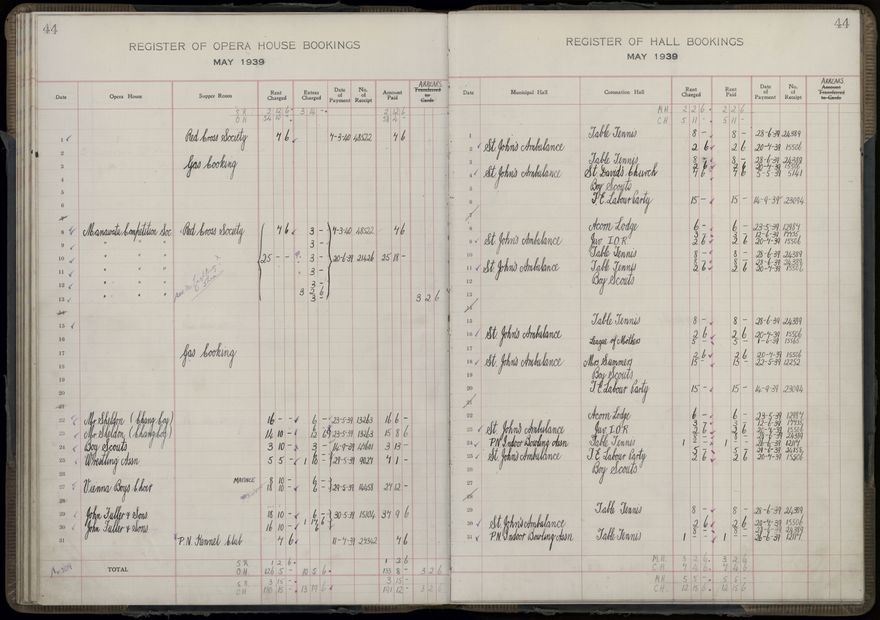 44
REGISTER OF OPERA HOUSE BOOKINGS
MAY 1939
Date Opera House Supper Room Rent Charged Extras Charged Date of Payment No. of Receipt Amount Paid ARREARS Transferred to Cards
S.R. 2 12 6 3 14 - 2 12 6
O.H.
1 Red Cross Society 7 6 7-3-40 48522 7 6
2
3 Gas Cooking
4
5
6
7
8 Manawatu Competition Soc Red Cross Society 7 6 3 - 7-3-40 48522 7 6
9 " " " 3 -
10 " " " 25 - - 3 - 20-6-39 21426 25 18 -
11 " " " 3 -
12 " " " 3 -
13 " " " 3 2 6
3 - 3 2 6
14
15
16
17 Gas Cooking
18
19
20
21
22 Mr Sheldon (Chang Boy) 16 - - 6 - 23-5-39 13263 16 6 -
23 Mr Sheldon (Chang Boy) 14 10 - 23-5-39 13263 15 8 6
24 Boy Scouts 3 10 - 3 13 -
25 Wrestling Assn 5 5 - 1 10 - 29-5-39 9029
26
27 Vienna Boys Choir MATINEE 8 10 - 6 -
18 10 - 6 - 29-5-39 14458 24 12 -
28
29 John Fuller & Sons 18 10 - 6 - 30-5-39 15104 37 9 6
30 John Fuller & Sons 16 10 - 1 17 6
6 -
31 P.N. Kennel Club 7 6 11-7-39 24342 7 6
TOTAL S.R. 1 2 6 1 2 6
O.H. 126 5 - 10 5 6 133 8 - 3 2 6
S.R. 3 15 - 3 15 -
O.H. 180 15 - 13 19 6 191 12 - 3 2 6
44
REGISTER OF HALL BOOKINGS
MAY 1939
Date Municipal Hall Coronation Hall Rent Charged Rent Paid Date of Payment No. of Receipt ARREARS Amount Transferred to Cards
M.H. 2 2 6 2 2 6
C.H. 5 11 - 5 11 -
1 Table Tennis 8 - 8 - 28-6-39 24389
2 St John's Ambulance 2 6 2 6 20-4-39 15506
3 Table Tennis 8 - 8 - 28-6-39 24389
4 St John's Ambulance St David's Church 2 6 2 6 20-4-39 15506
7 6 7 6 5-5-39 5141
5 Boy Scouts
6 P.E. Labour Party 15 - 15 - 14-9-39 23094
7
8 Acorn Lodge 6 - 6 - 23-5-39 12987
9 St John's Ambulance Juv I.O.R 2 6 2 6 20-4-39 15506
10 Table Tennis 8 - 8 - 28-6-39 24389
11 St John's Ambulance Table Tennis 8 - 8 - 28-6-39 24389
2 6 2 6 20-4-39 15506
12 Boy Scouts
13
14
15 Table Tennis 8 - 8 - 28-6-39 24389
16 St John's Ambulance 2 6 2 6 20-4-39 15506
17 League of Mothers 5 - 5 -
18 St John's Ambulance Mrs Summers 2 6 2 6 20-4-39 15506
15 - 15 - 22-5-39 12252
19 Boy Scouts
20 P.E. Labour Party 15 - 15 - 14-9-39 23094
21
22 Acorn Lodge 6 - 6 - 23-5-39 12987
23 St John's Ambulance Juv I.O.R 2 6 2 6 20-4-39 15506
24 P.N. Indoor Bowling Assn Table Tennis 8 - 8 -
1 - - 1 - -
25 St John's Ambulance P.E. Labour Party 5 - 5 -
2 6 2 6 20-4-39 15506
26 Boy Scouts
27
28
29 Table Tennis 8 - 8 - 28-6-39 24389
30 St John's Ambulance 2 6 2 6 20-4-39 15506
31 P.N. Indoor Bowling Assn Table Tennis 8 - 8 - 28-6-39 24389
1 - - 1 - -
M.H. 3 2 6 3 2 6
C.H. 7 4 6 7 4 6
M.H. 5 5 - 5 5 -
C.H. 12 15 6 12 15 6